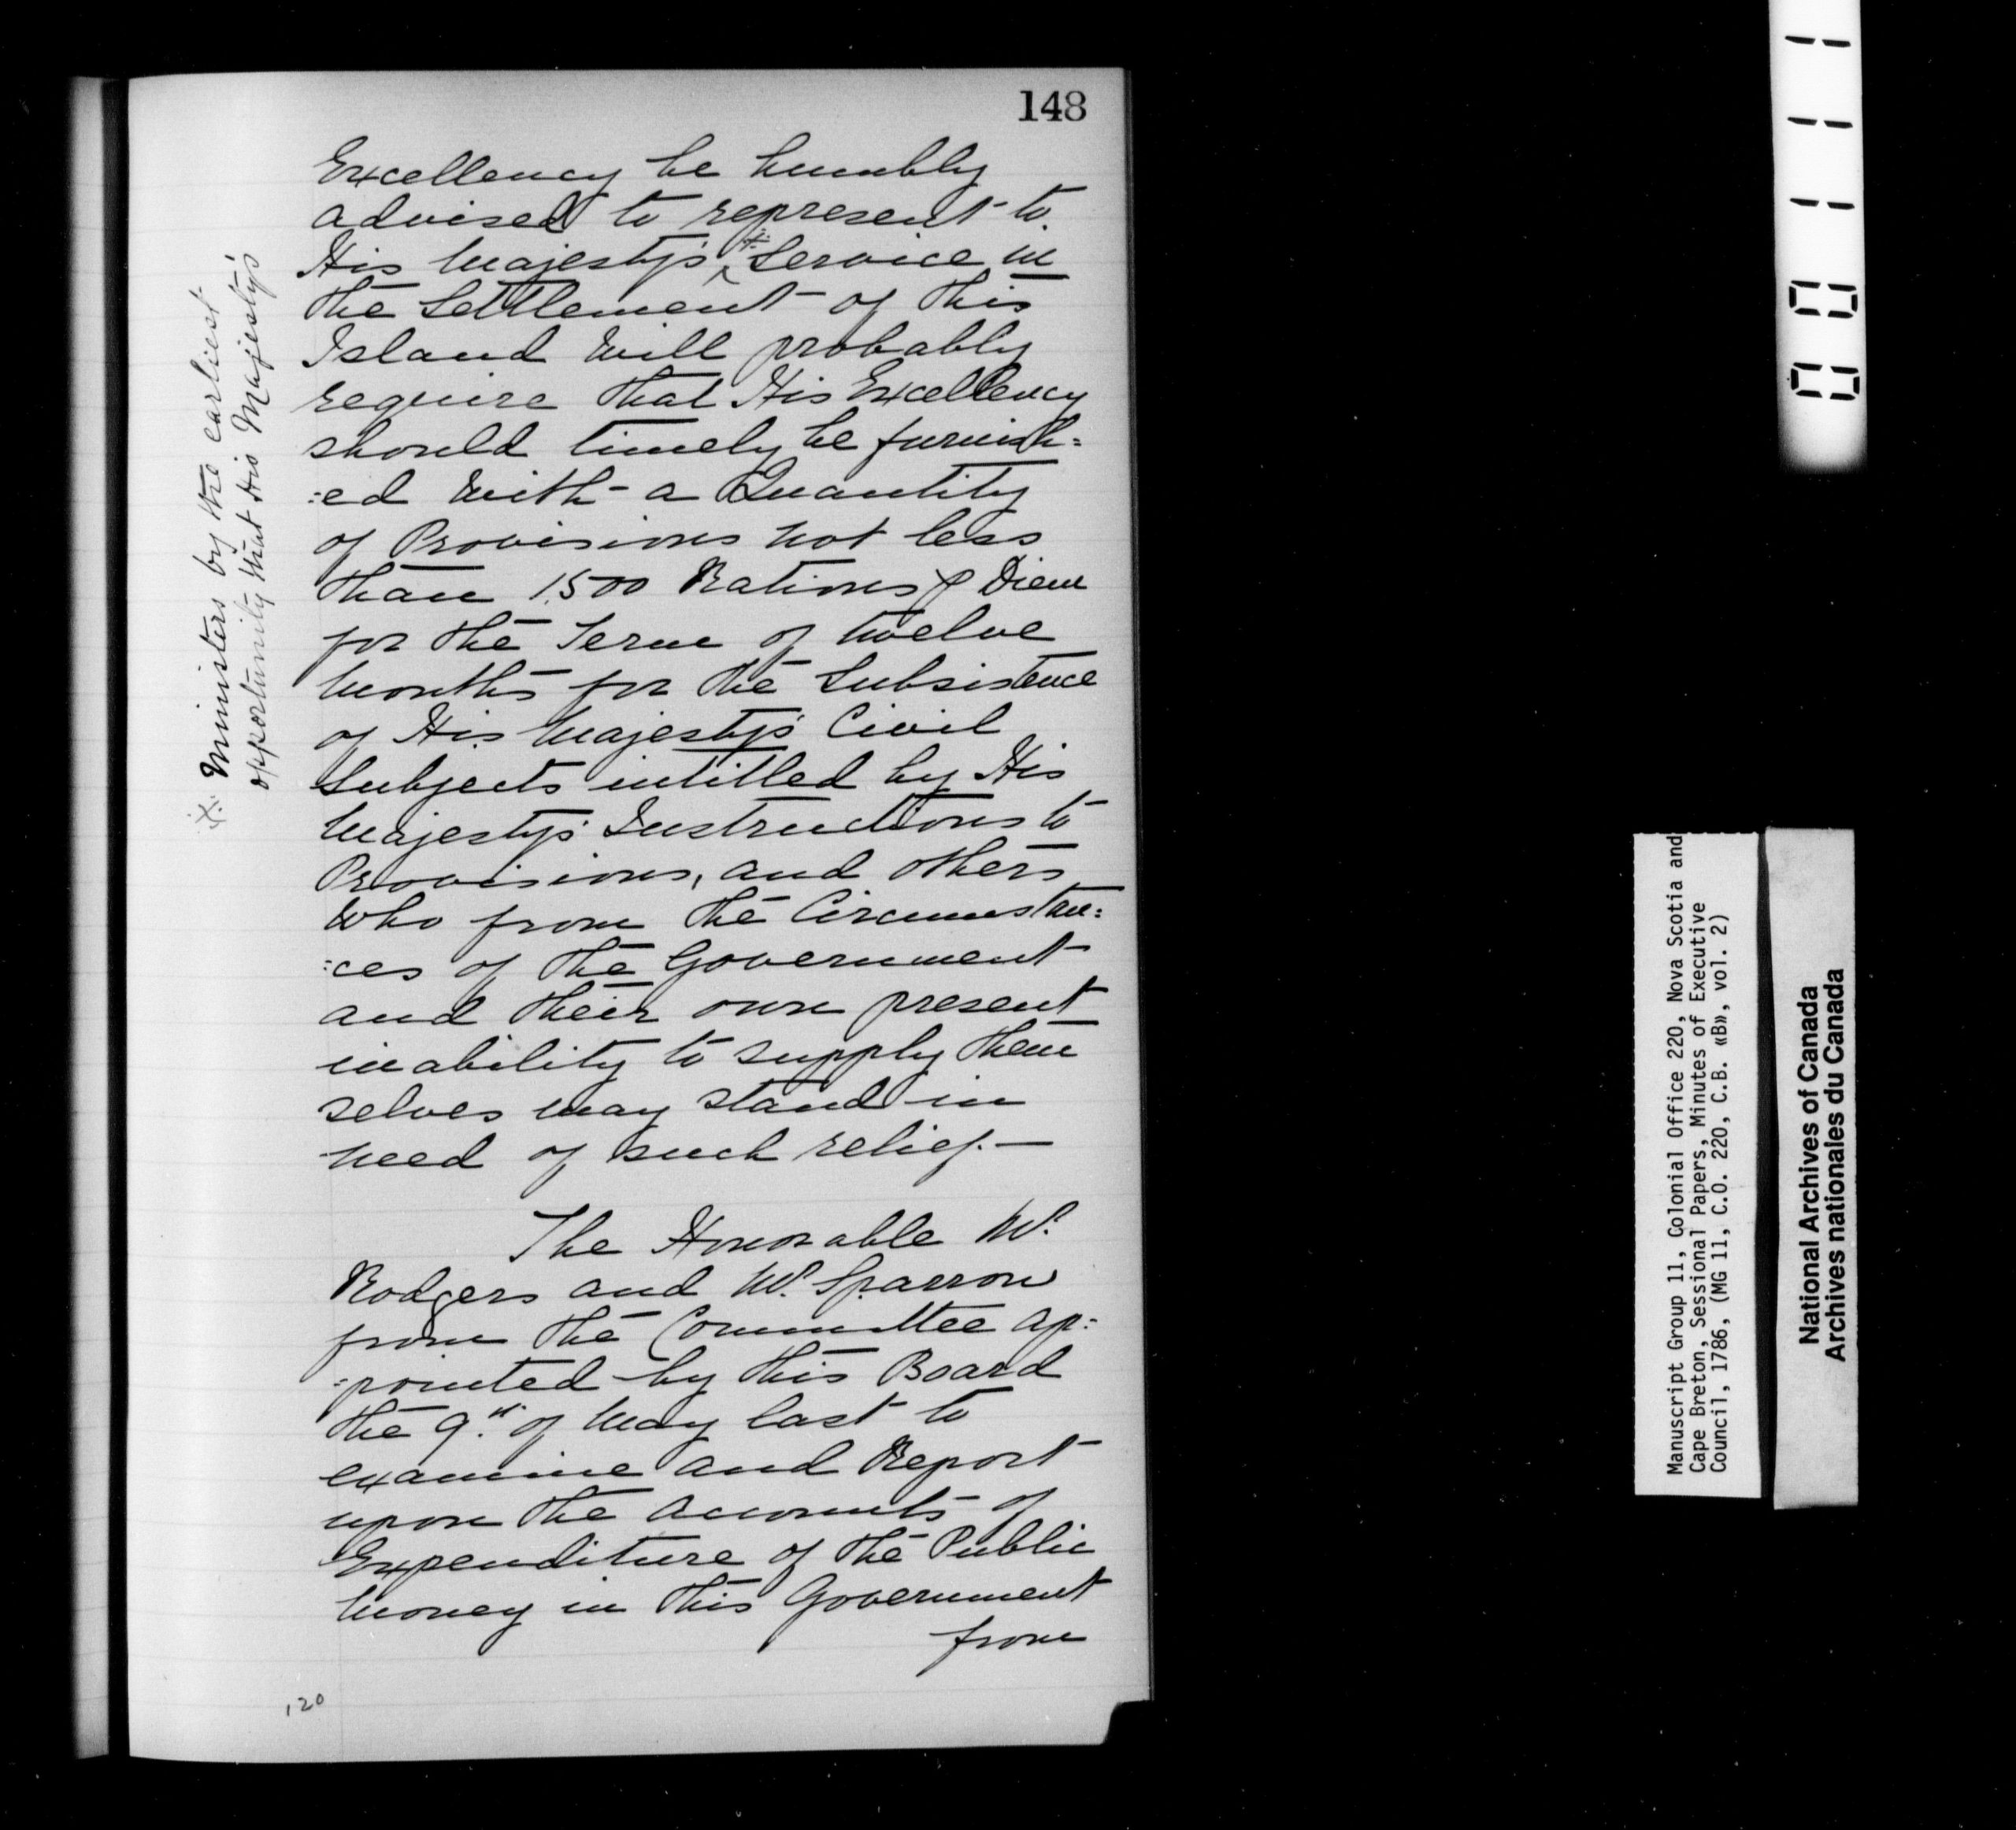 148
Excellency be humbly
advised to represent to
His Majesty's ※ Service in
the Settlement of this
Island will probably
require that His Excellency
should timely be furnish=
=ed with a Quantity
of Provisions not less
than 1500 Rations ⅌ Diem
for the Term of twelve
Months for the Subsistence
of His Majesty's Civil
Subjects intitled by His
Majesty's Instructions to
Provisions, and others
who from the Circumstan=
=ces of the Government
and their own present
inability to supply them
selves may stand in
need of such relief.—
The Honorable Mr.
Rodgers and Mr. Sparrow
from the Committee ap=
=pointed by this Board
the 9th. of May last to
examine and Report
upon the accounts of
Expenditure of the Public
Money in this Government
from
※ Ministers by the earliest
opportunity that His Majesty's
120
00111
Manuscript Group 11, Colonial Office 220, Nova Scotia and
Cape Breton, Sessional Papers, Minutes of Executive
Council, 1786, (MG 11, C.O. 220, C.B. «B», vol. 2)
National Archives of Canada
Archives nationales du Canada